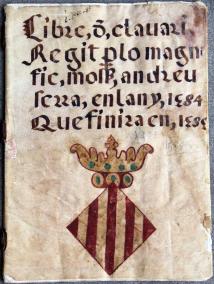 Libre, ō, clauari
Regit plo magni
fic, mosᷤ, andreu
serra, en lany, 1584
Que finira en, 158